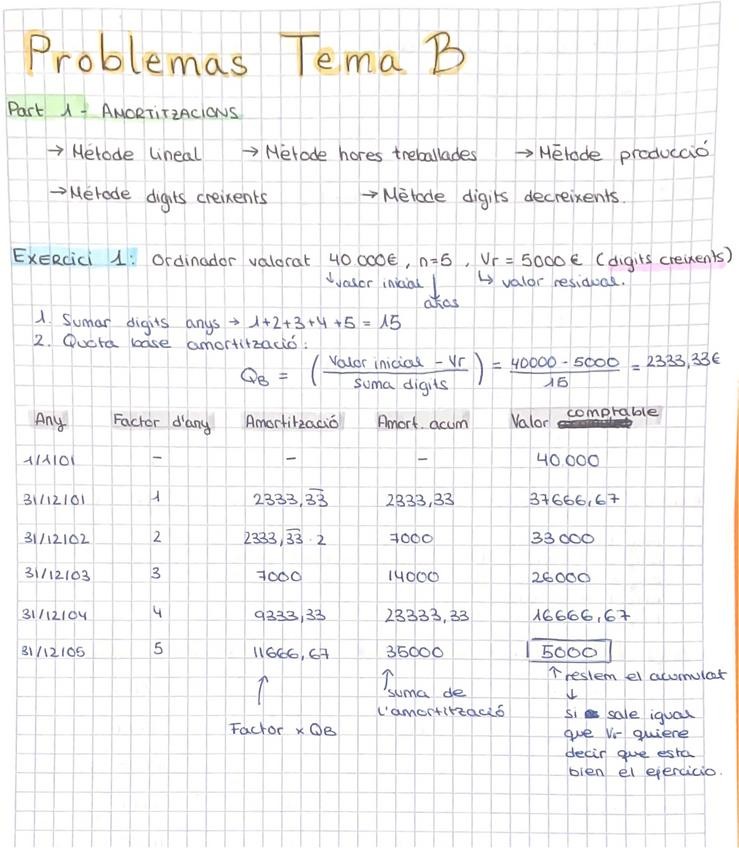 Problemas Tema B
Part 1 - AMORTITZACIONS
→ Mètode lineal → Mètode hores treballades → Mètode producció
→ Mètode digits creixents → Mètode digits decreixents.
EXERCICI 1: Ordinador valorat 40.000€, n=5, Vr = 5000€ (digits creixents)
↓valor inicial ↓ ↳ valor residual.
años
1. Sumar digits anys → 1+2+3+4+5 = 15
2. Quota base amortització:
QB = (Valor inicial - Vr / suma digits) = 40000 - 5000 / 15 = 2333,33€
Any Factor d'any Amortització Amort. acum Valor comptable
1/1/01 - - - 40.000
31/12/01 1 2333,3̅3̅ 2333,33 37666,67
31/12/02 2 2333,3̅3̅ · 2 7000 33000
31/12/03 3 7000 14000 26000
31/12/04 4 9333,33 23333,33 16666,67
31/12/05 5 11666,67 35000 5000
↑ ↑ ↑ restem el acumulat
suma de ↓
l'amortització si sale igual
Factor x QB que Vr quiere
decir que esta
bien el ejercicio.